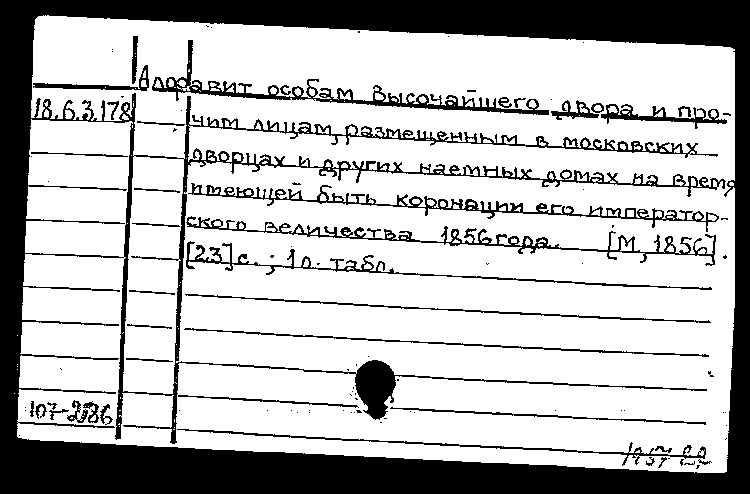 Алфавит особам Высочайшего двора и про-
18.6.3.178
чим лицам, размещенным в московских
дворцах и других наемных домах на время
имеющей быть коронации его император-
ского величества 1856 года. [М, 1856].
[23] с.; 1 л. табл.